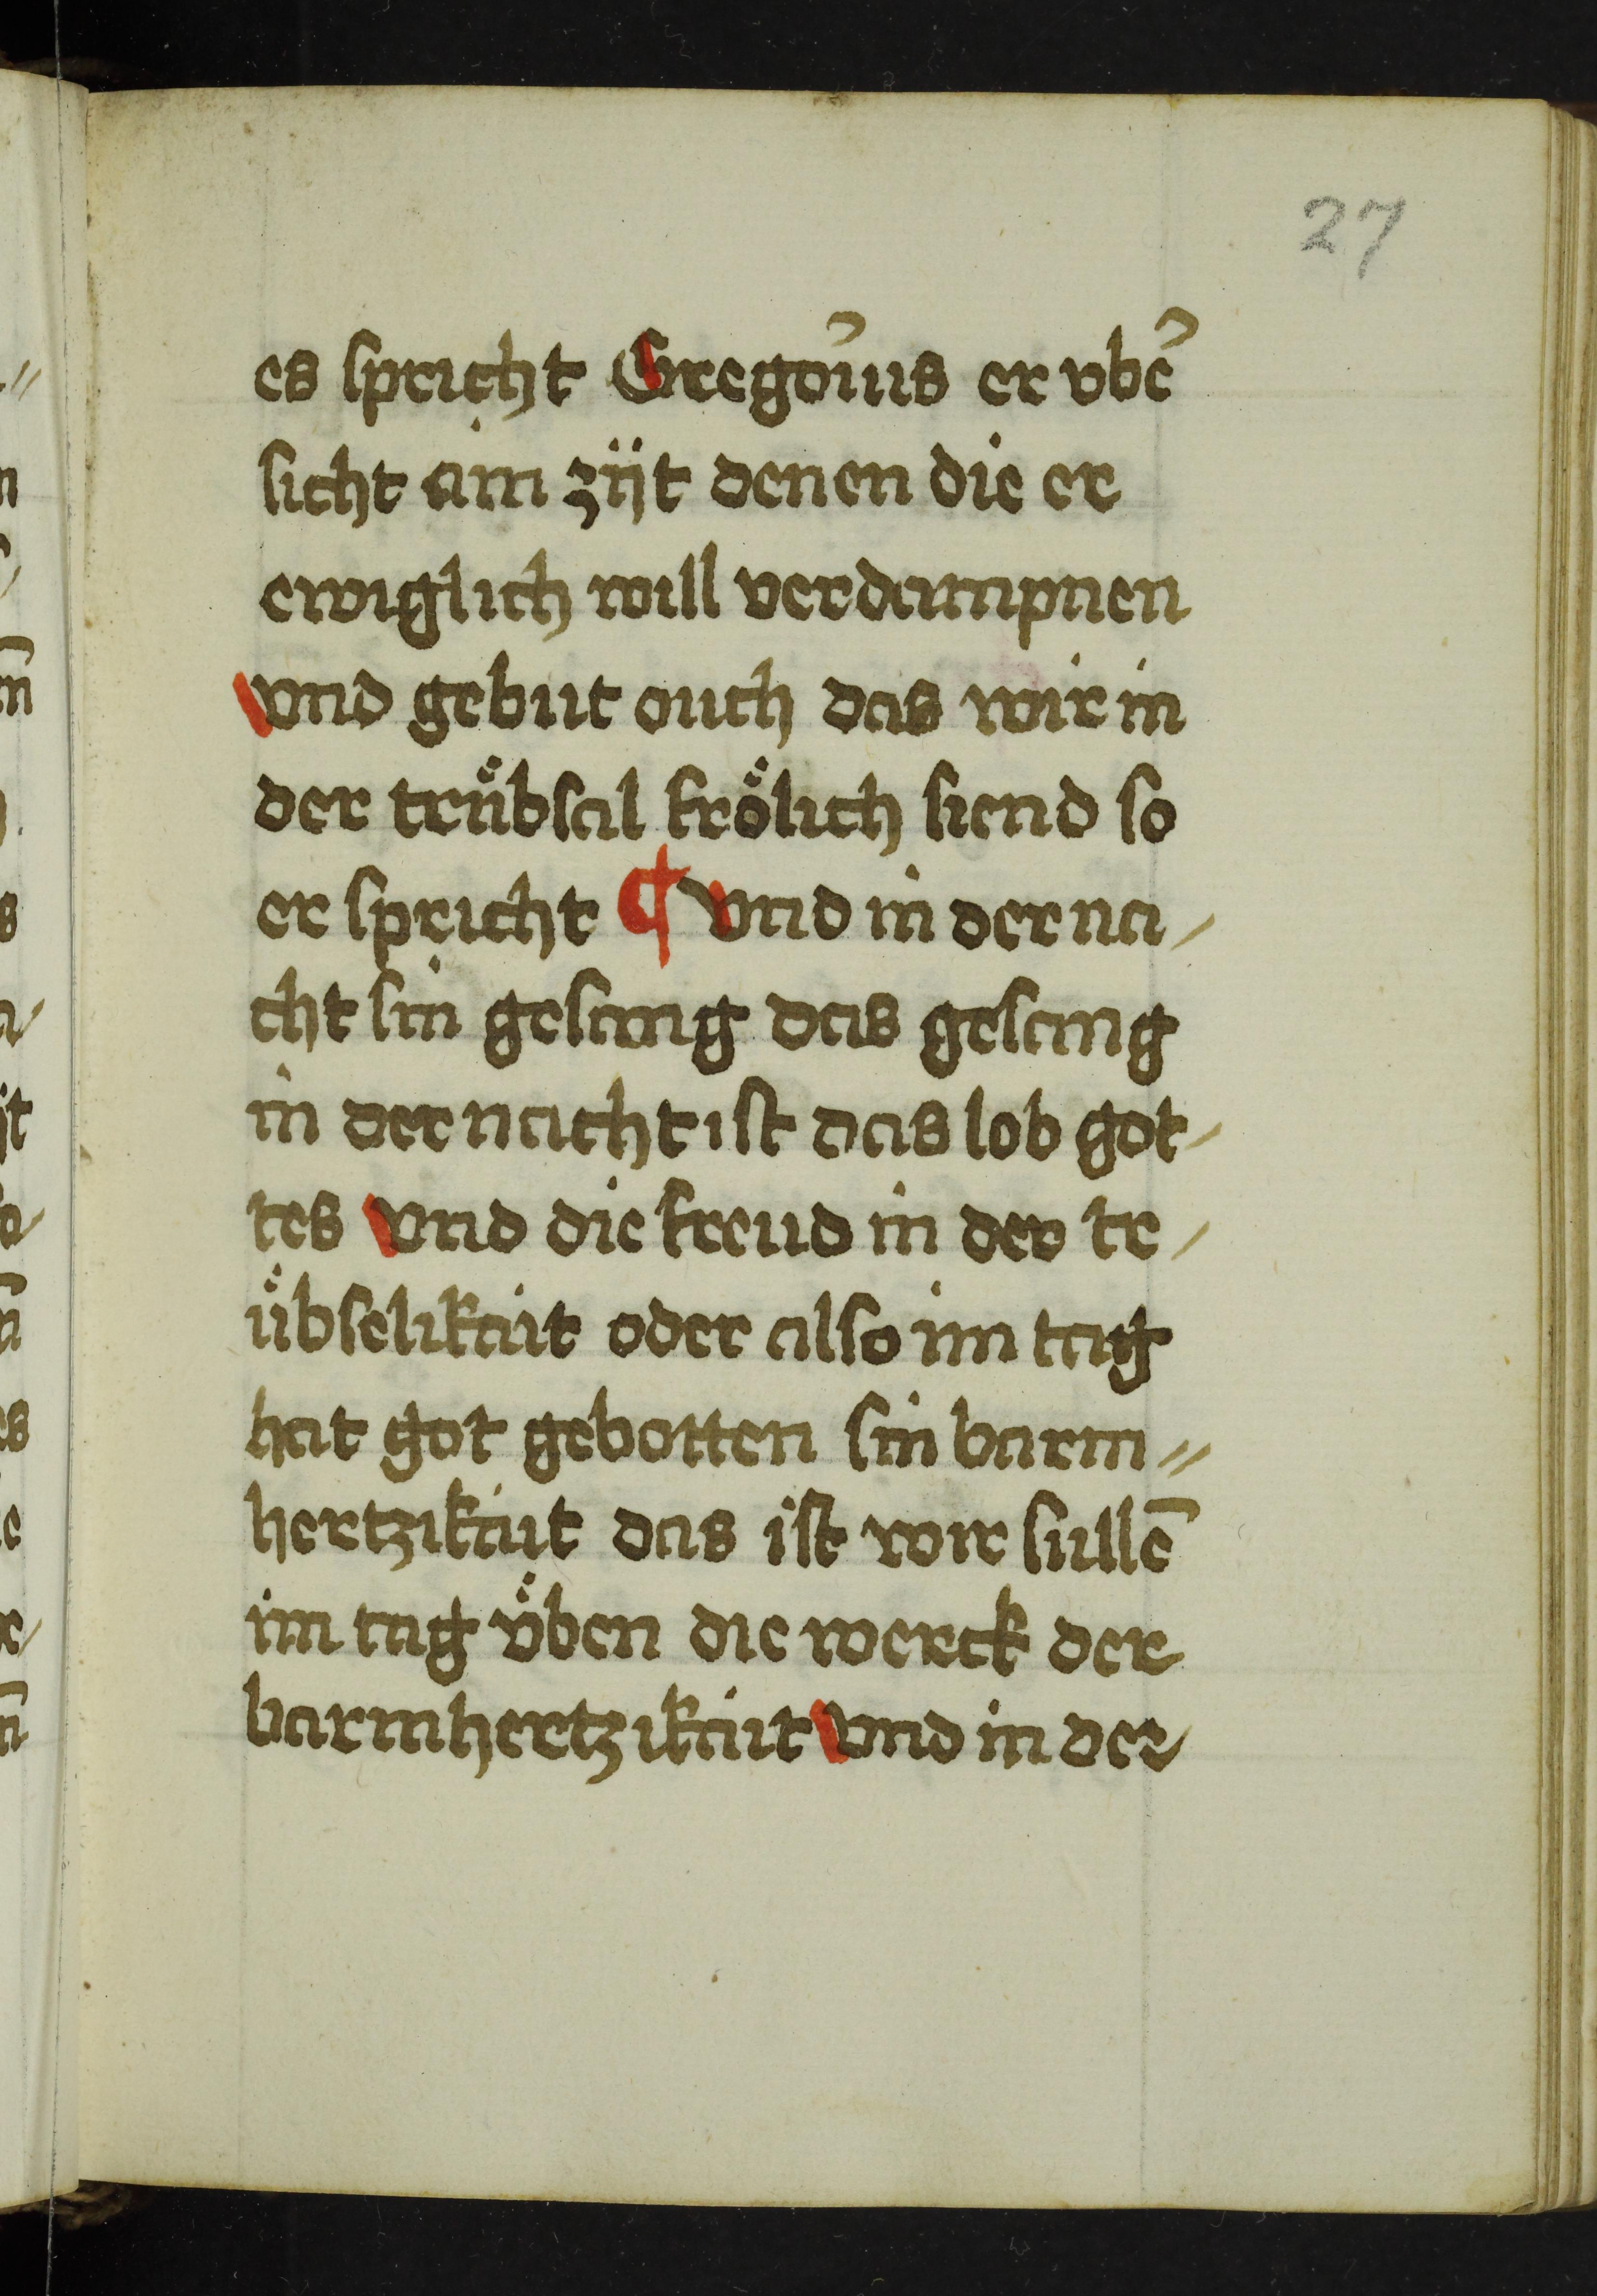 27
es spricht Gregoꝰius er vbeꝰ
sicht ain zijt denen die er
ewiglich will verdampnen
vnd gebiut ouch das wir in
der truͤbsal froͤlich siend so
er spricht ¶ Vnd in der na⸗
cht sin gesang das gesang
in der nacht ist das lob got⸗
tes Vnd die freud in der tr⸗
uͤbselikait oder also im tag
hat got gebotten sin barm⸗
hertzikait das ist wir sullē
im tag vͤben die werck der
barmhertzikait Vnd in der